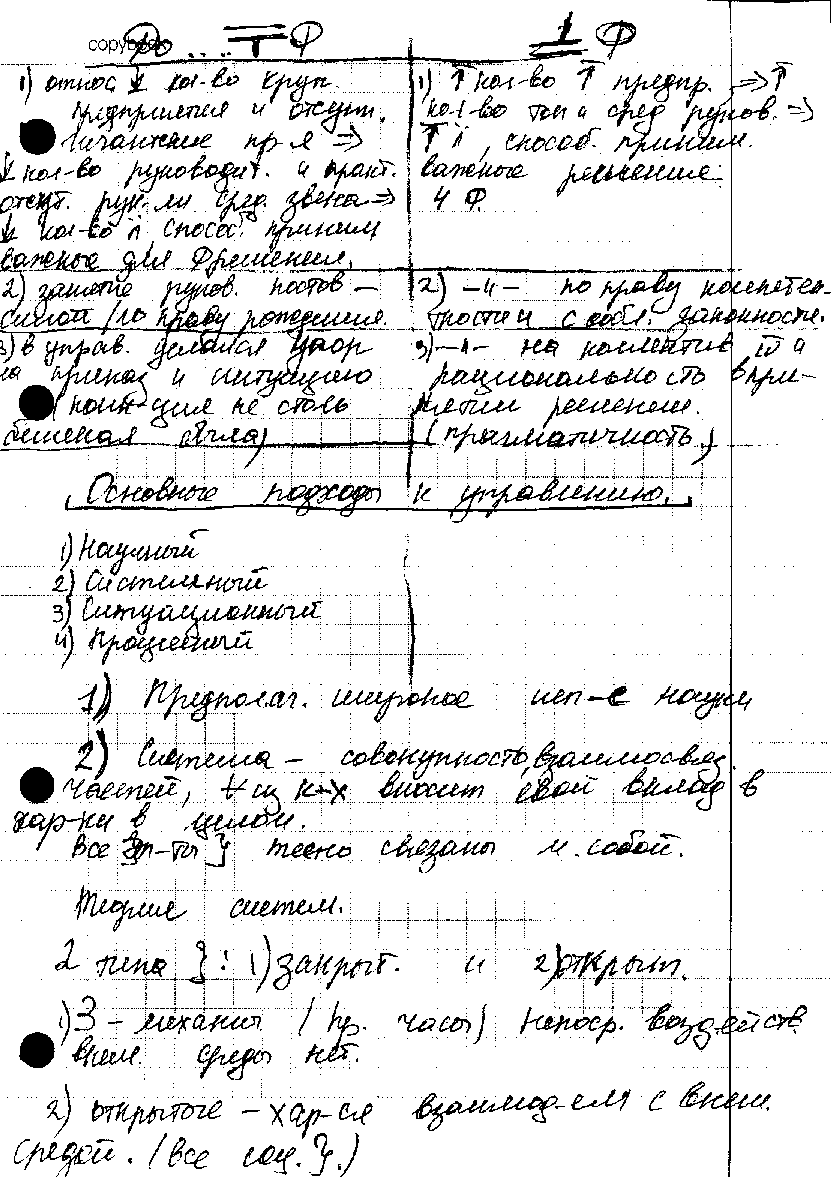 copybook
До ... T Ф
1 Ф
1) относ ↓ кол-во круп.
предприятия и отсут.
гигантские пр-я =>
↓ кол-во руководит. и практ.
отсут. рук-ли сред. звена =>
↓ кол-во л способ. приним
важные для Ф решения.
1) ↑ кол-во ↑ предпр. => ↑
кол-во топ и сред руков. =>
↑ л, способ. приним.
важное решение
4 Ф.
2) занятие руков. постов –
силой / по праву рождения.
3) в управ. делался упор
на приказ и интуицию
не столь
была)
2) –"– по праву компетен-
тности и с собл. законности.
3) –"– на коллектив и
рациональность в при-
нятии решении.
(прагматичность)
Основные подходы к управлению.
1) Научный
2) Системный
3) Ситуационный
4) Процессный
1) Предполаг. широкое исп-е науки
2) Система – совокупность взаимосвяз.
частей, ∀ из к-х вносит свой вклад в
хар-ки в целом.
Все эл-ты } тесно связаны м. собой.
Теория систем.
2 типа }: 1) закрыт. и 2) открыт.
1) З – механизм (пр. часы) непоср. воздейств.
внеш. среды нет.
2) открытое – хар-ся взаимод-ем с внеш.
средой. (все соц. }.)